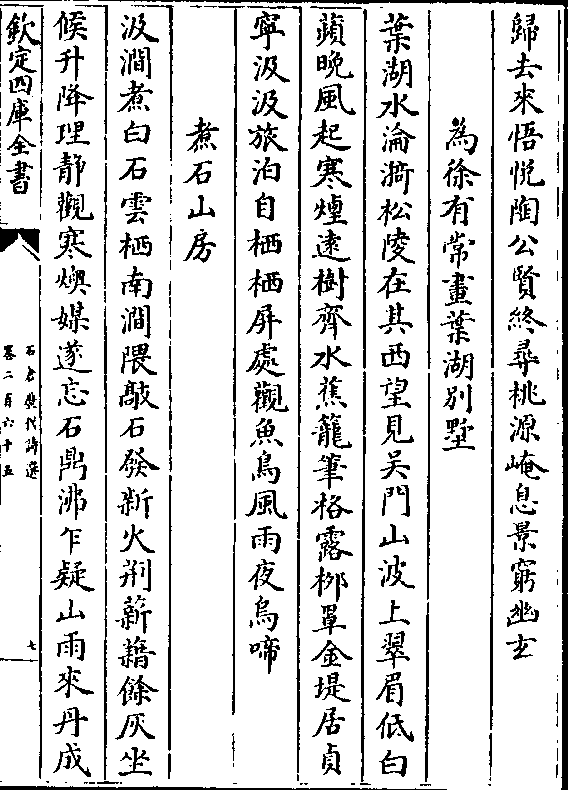 歸去來悟悦陶公賢終尋桃源崦息景窮幽𤣥
為徐有常畫葉湖別墅
葉湖水淪漪松陵在其西望見吴門山波上翠眉低白
蘋晩風起寒煙逺樹齊水蕉籠筆格露栁罩金堤居貞
寧汲汲旅泊自栖栖屏處觀魚鳥風雨夜烏啼
煮石山房
汲澗煮白石雲栖南澗隈敲石發新火荆薪藉餘灰坐
候升降理靜觀寒燠媒遂忘石鼎沸乍疑山雨來丹成
欽定四庫全書
石倉歴代詩選
卷二百六十五
七